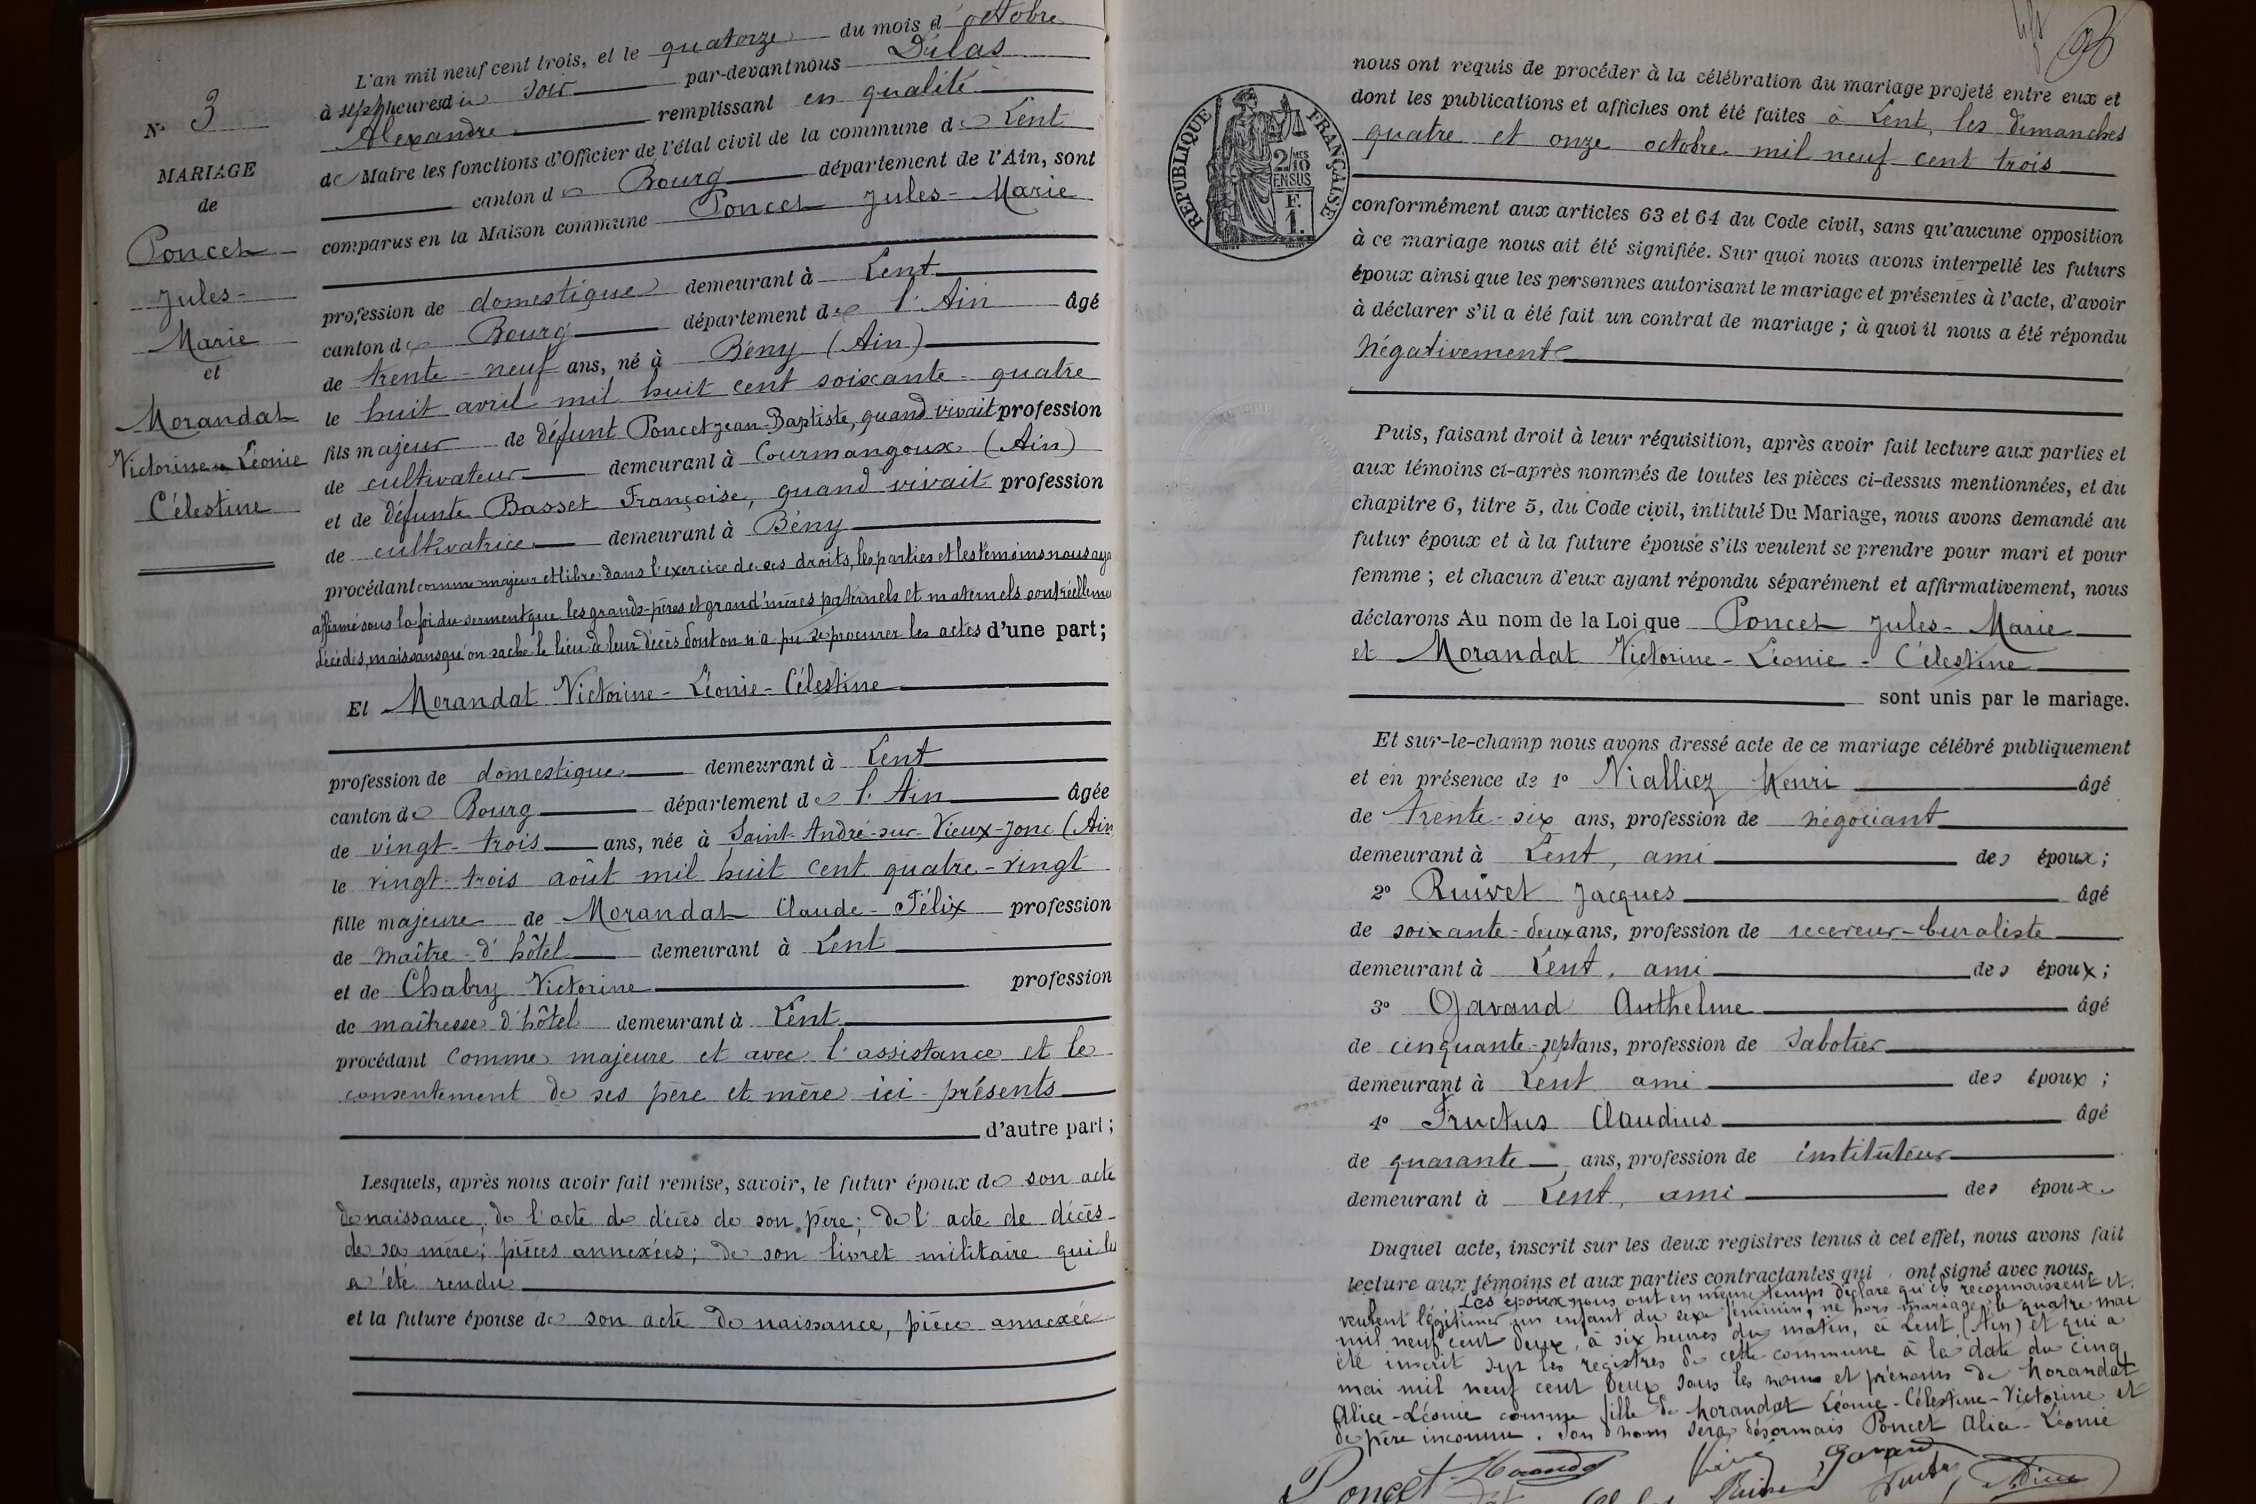 N° 3
MARIAGE
de
Poncet
Jules-
Marie
et
Morandat
Victorine-Léonie
Célestine
L'an mil neuf cent trois, et le quatorze du mois d'octobre
à sept heures du soir par-devant nous Dulas
Alexandre remplissant en qualité
de Maire les fonctions d'Officier de l'état civil de la commune de Lent
canton de Bourg département de l'Ain, sont
comparus en la Maison commune Poncet Jules-Marie
profession de domestique demeurant à Lent
canton de Bourg département de l'Ain âgé
de trente-neuf ans, né à Bény (Ain)
le huit avril mil huit cent soixante-quatre
fils majeur de défunt Poncet Jean-Baptiste, quand vivait profession
de cultivateur demeurant à Courmangoux (Ain)
et de défunte Basset Françoise, quand vivait profession
de cultivatrice demeurant à Bény
procédant comme majeur et libre dans l'exercice de ses droits, les parties et les témoins nous aya
affirmé sous la foi du serment que les grands-pères et grand'mères paternels et maternels sont réelleme
décédés, mais sans qu'on sache le lieu de leur décès dont on n'a pu se procurer les actes d'une part;
Et Morandat Victorine-Léonie-Célestine
profession de domestique demeurant à Lent
canton de Bourg département de l'Ain âgée
de vingt-trois ans, née à Saint-André-sur-Vieux-Jonc (Ain
le vingt-trois août mil huit cent quatre-vingt
fille majeure de Morandat Claude-Félix profession
de maître-d'hôtel demeurant à Lent
et de Chabry Victorine profession
de maîtresse d'hôtel demeurant à Lent
procédant comme majeure et avec l'assistance et le
consentement de ses père et mère ici-présents
d'autre part;
Lesquels, après nous avoir fait remise, savoir, le futur époux de son acte
de naissance; de l'acte de décès de son père; de l'acte de décès
de sa mère; pièces annexées; de son livret militaire qui lui
a été rendu
et la future épouse de son acte de naissance, pièce annexée
RÉPUBLIQUE FRANÇAISE
2/MES
10
EN SUS
F.
1.
nous ont requis de procéder à la célébration du mariage projeté entre eux et
dont les publications et affiches ont été faites à Lent, les dimanches
quatre et onze octobre mil neuf cent trois
conformément aux articles 63 et 64 du Code civil, sans qu'aucune opposition
à ce mariage nous ait été signifiée. Sur quoi nous avons interpellé les futurs
époux ainsi que les personnes autorisant le mariage et présentes à l'acte, d'avoir
à déclarer s'il a été fait un contrat de mariage; à quoi il nous a été répondu
négativement
Puis, faisant droit à leur réquisition, après avoir fait lecture aux parties et
aux témoins ci-après nommés de toutes les pièces ci-dessus mentionnées, et du
chapitre 6, titre 5, du Code civil, intitulé Du Mariage, nous avons demandé au
futur époux et à la future épouse s'ils veulent se prendre pour mari et pour
femme; et chacun d'eux ayant répondu séparément et affirmativement, nous
déclarons Au nom de la Loi que Poncet Jules-Marie
et Morandat Victorine-Léonie-Célestine
sont unis par le mariage.
Et sur-le-champ nous avons dressé acte de ce mariage célébré publiquement
et en présence de 1° Nialliez Henri âgé
de trente-six ans, profession de négociant
demeurant à Lent, ami des époux;
2° Ruivet Jacques âgé
de soixante-deux ans, profession de receveur-buraliste
demeurant à Lent, ami des époux;
3° Gavand Anthelme âgé
de cinquante-sept ans, profession de sabotier
demeurant à Lent ami des époux;
4° Fructus Claudius âgé
de quarante ans, profession de instituteur
demeurant à Lent, ami des époux.
Duquel acte, inscrit sur les deux registres tenus à cet effet, nous avons fait
lecture aux témoins et aux parties contractantes qui ont signé avec nous.
Les époux nous ont en même temps déclaré qu'ils reconnaissent et
veulent légitimer un enfant du sexe féminin, né hors mariage, le quatre mai
mil neuf cent deux, à six heures du matin, à Lent (Ain) et qui a
été inscrit sur les registres de cette commune à la date du cinq
mai mil neuf cent deux sous les noms et prénoms de Morandat
Alice-Léonie comme fille de Morandat Léonie-Célestine-Victorine et
de père inconnu. Son nom sera désormais Poncet Alice-Léonie
Poncet Morandat Gavand